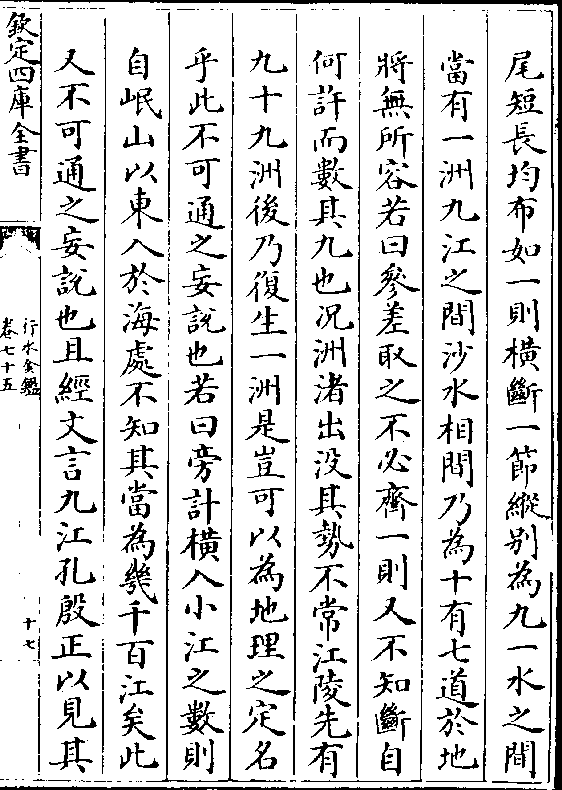 尾短長均布如一則横斷一節縱别為九一水之間
當有一洲九江之間沙水相間乃為十有七道於地
將無所容若曰參差取之不必齊一則又不知斷自
何許而數其九也况洲渚出没其勢不常江陵先有
九十九洲後乃復生一洲是豈可以為地理之定名
乎此不可通之妄説也若曰旁計横入小江之數則
自岷山以東入於海處不知其當為幾千百江矣此
又不可通之妄説也且經文言九江孔殷正以見其
欽定四庫全書
行水金鑑
卷七十五
十七